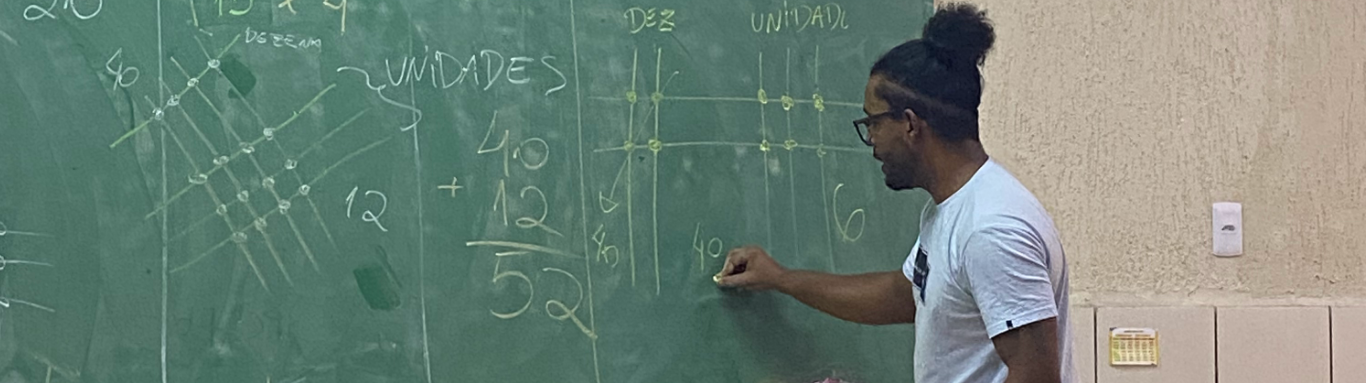 20
13 x 4
DEZENA
40
UNIDADES
12
40
+ 12
52
DEZ UNIDADE
40
40
6